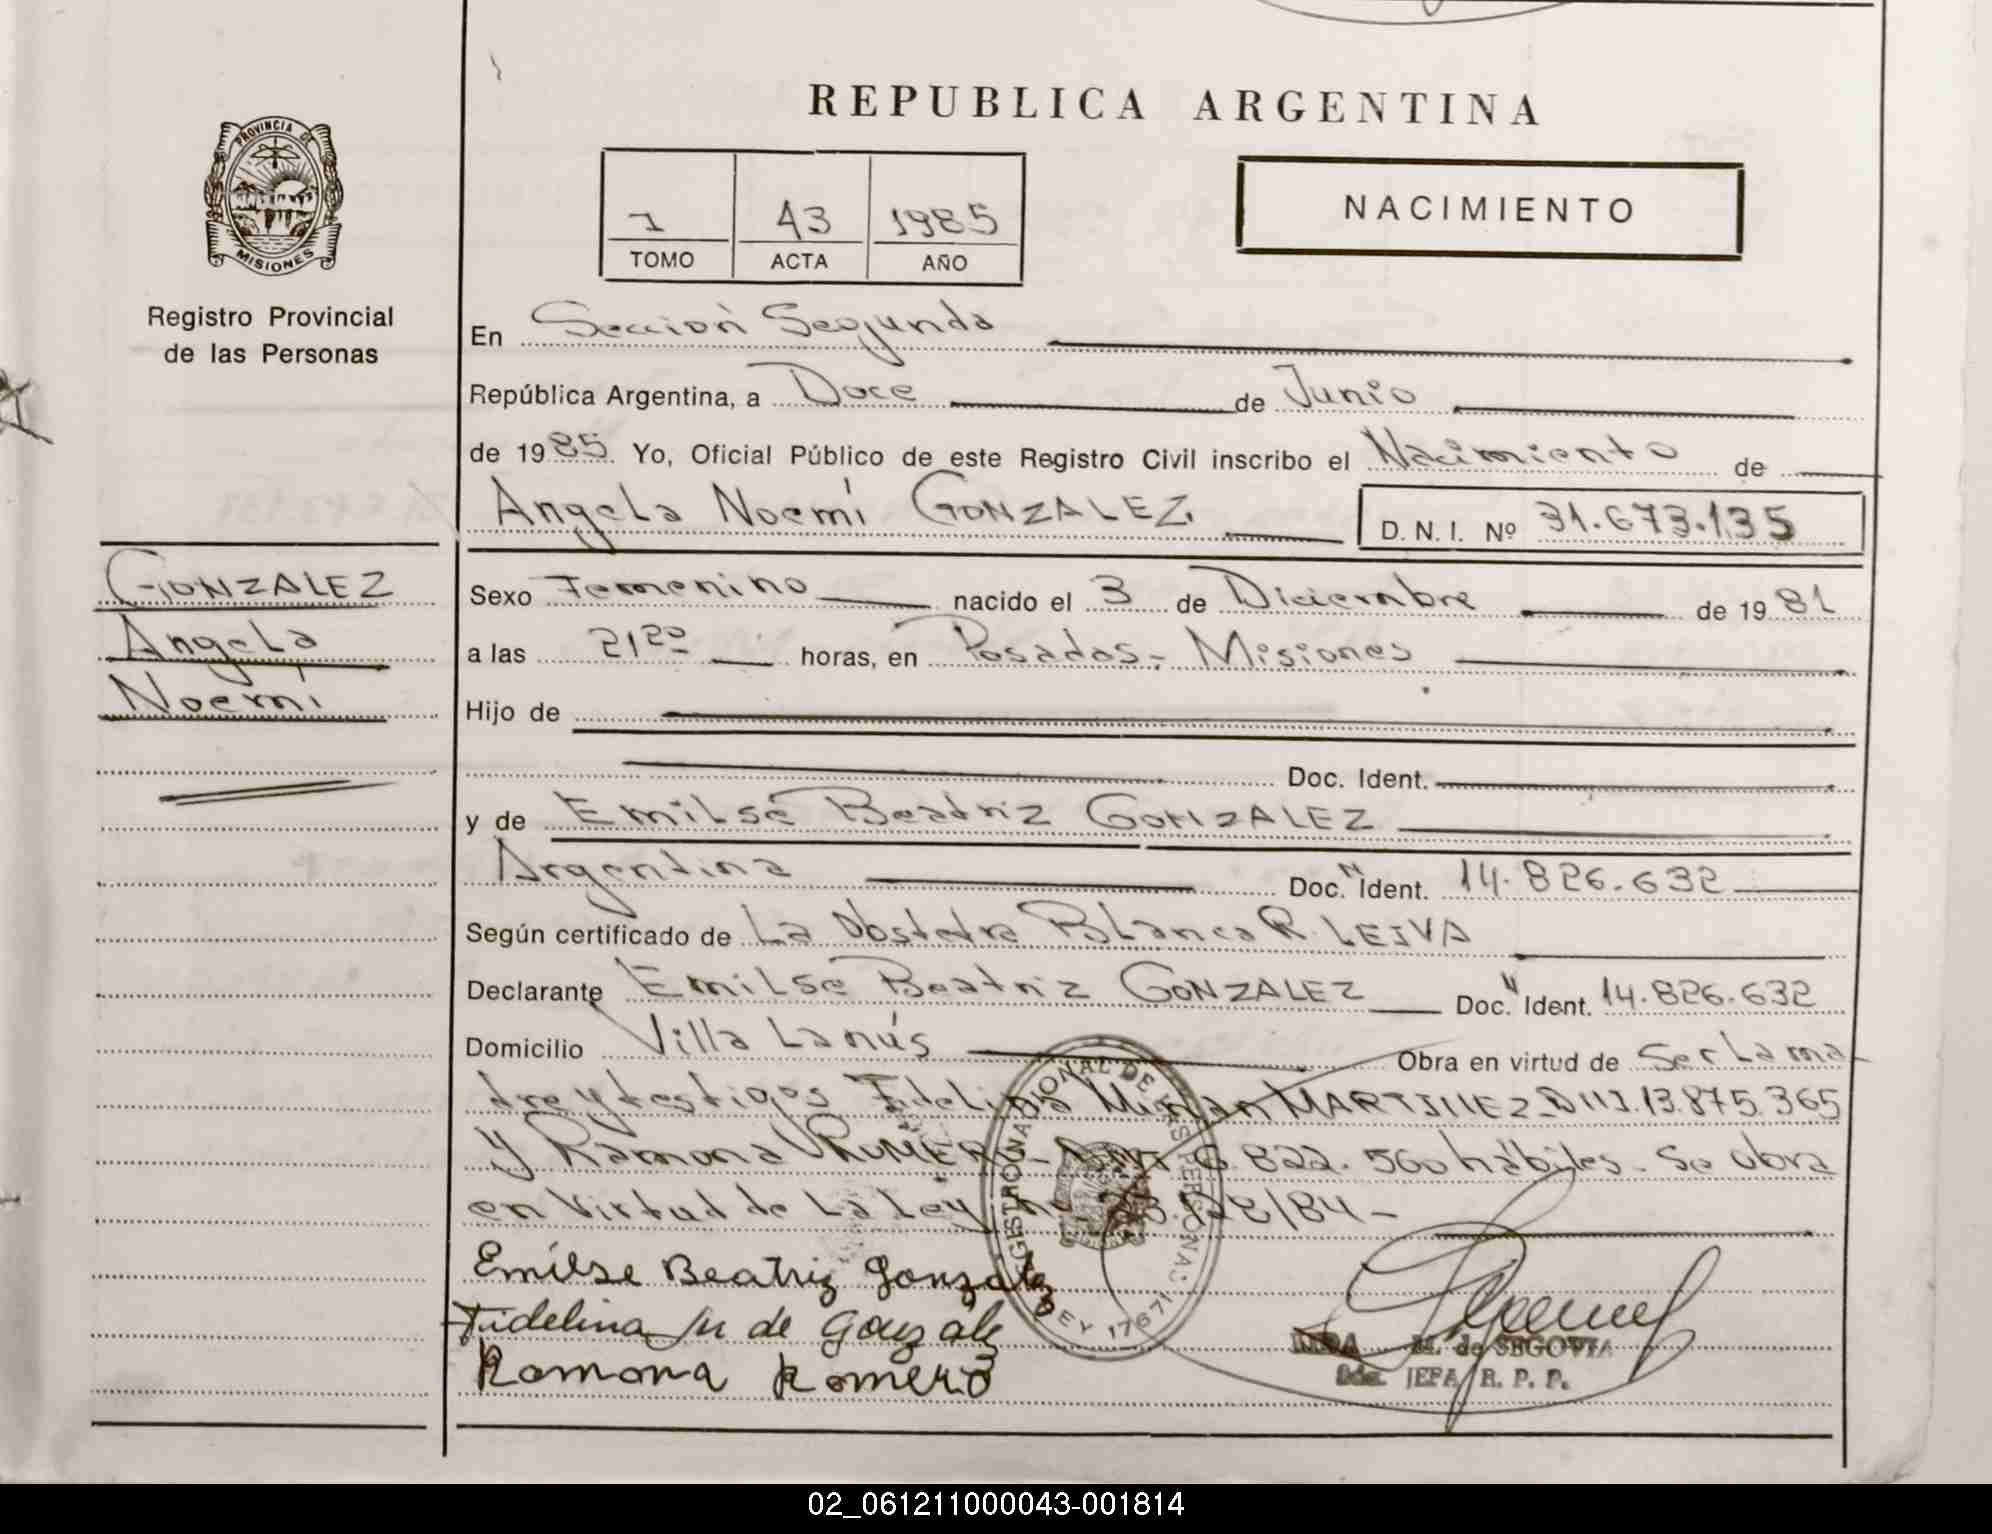 REPUBLICA ARGENTINA
PROVINCIA DE
MISIONES
Registro Provincial
de las Personas
1 43 1985
TOMO ACTA AÑO
NACIMIENTO
En Sección Segunda
República Argentina, a Doce de Junio
de 1985. Yo, Oficial Público de este Registro Civil inscribo el Nacimiento de
Angela Noemí GONZALEZ. D. N. I. Nº 31.673.135
GONZALEZ
Angela
Noemí
Sexo Femenino nacido el 3 de Diciembre de 1981
a las 21 20 horas, en Posadas - Misiones
Hijo de
Doc. Ident.
y de Emilse Beatriz GONZALEZ
Argentina Doc. Ident. 14.826.632
Según certificado de La Obstetra Blanca R. LEIVA
Declarante Emilse Beatriz GONZALEZ Doc. Ident. 14.826.632
Domicilio Villa Lanús Obra en virtud de Ser La ma-
dre y testigos Fidelina Mirian MARTINEZ - DNI. 13.875.365
y Ramona ROMERO - DNI 6.822.560 hábiles - Se obra
en Virtud de La Ley nº 23.128/84 -
REGISTRO NACIONAL DE LAS PERSONAS
LEY 17671
Emilse Beatriz Gonzalez
Fidelina M de Gonzale
Ramona Romero
M. de SEGOVIA
JEFA R. P. P.
02_061211000043-001814